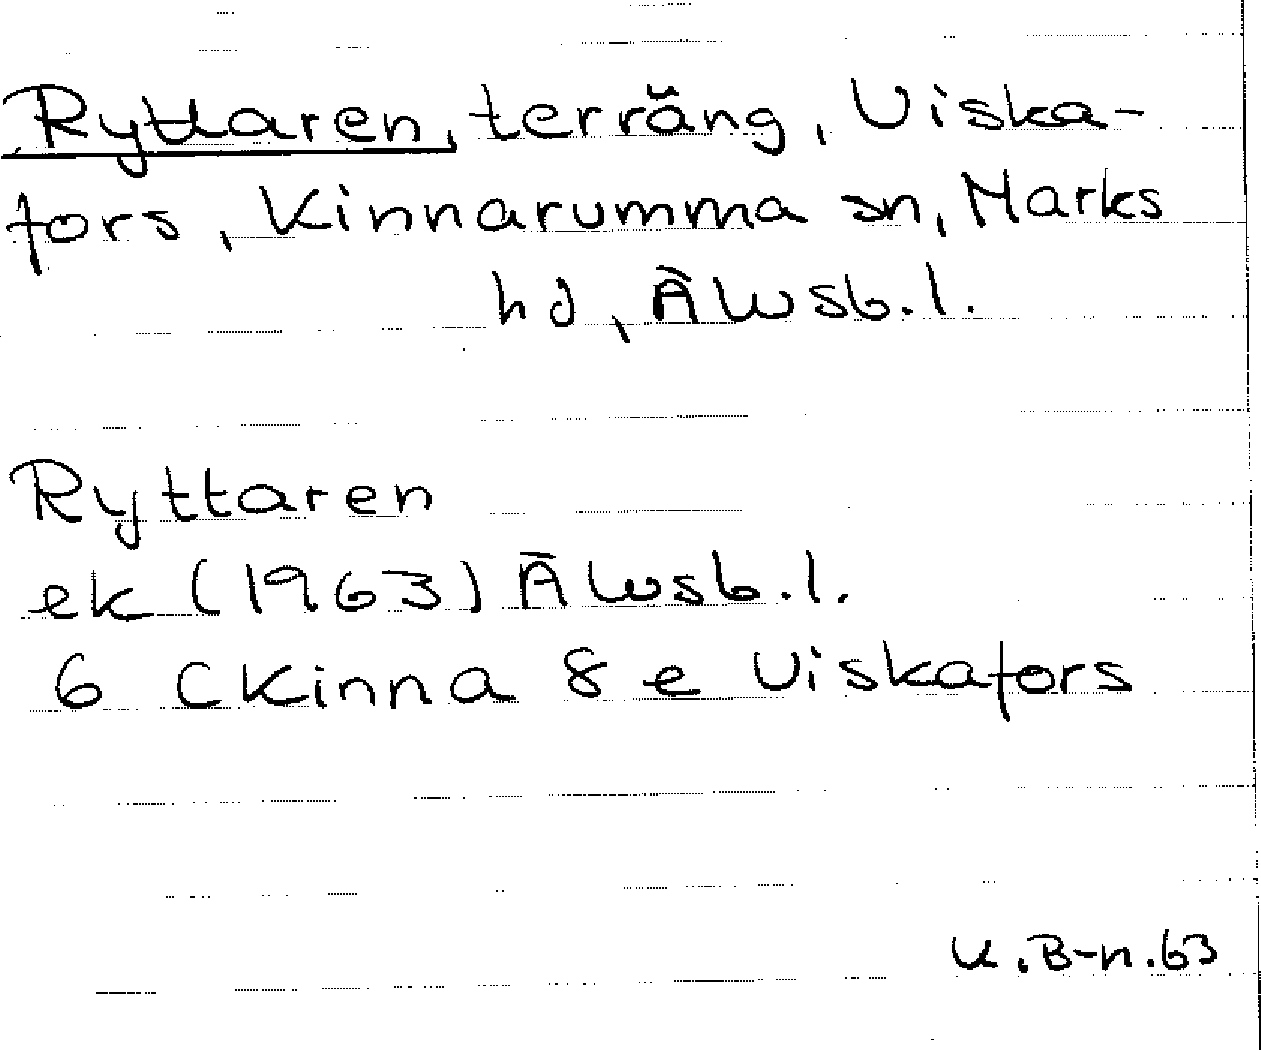 Ryttaren, terräng, Viska-
fors, Kinnarumma sn, Marks
hd, Älvsb.l.
Ryttaren
ek (1963) Älvsb.l.
6 C Kinna 8 e Viskafors
K.B-n.63